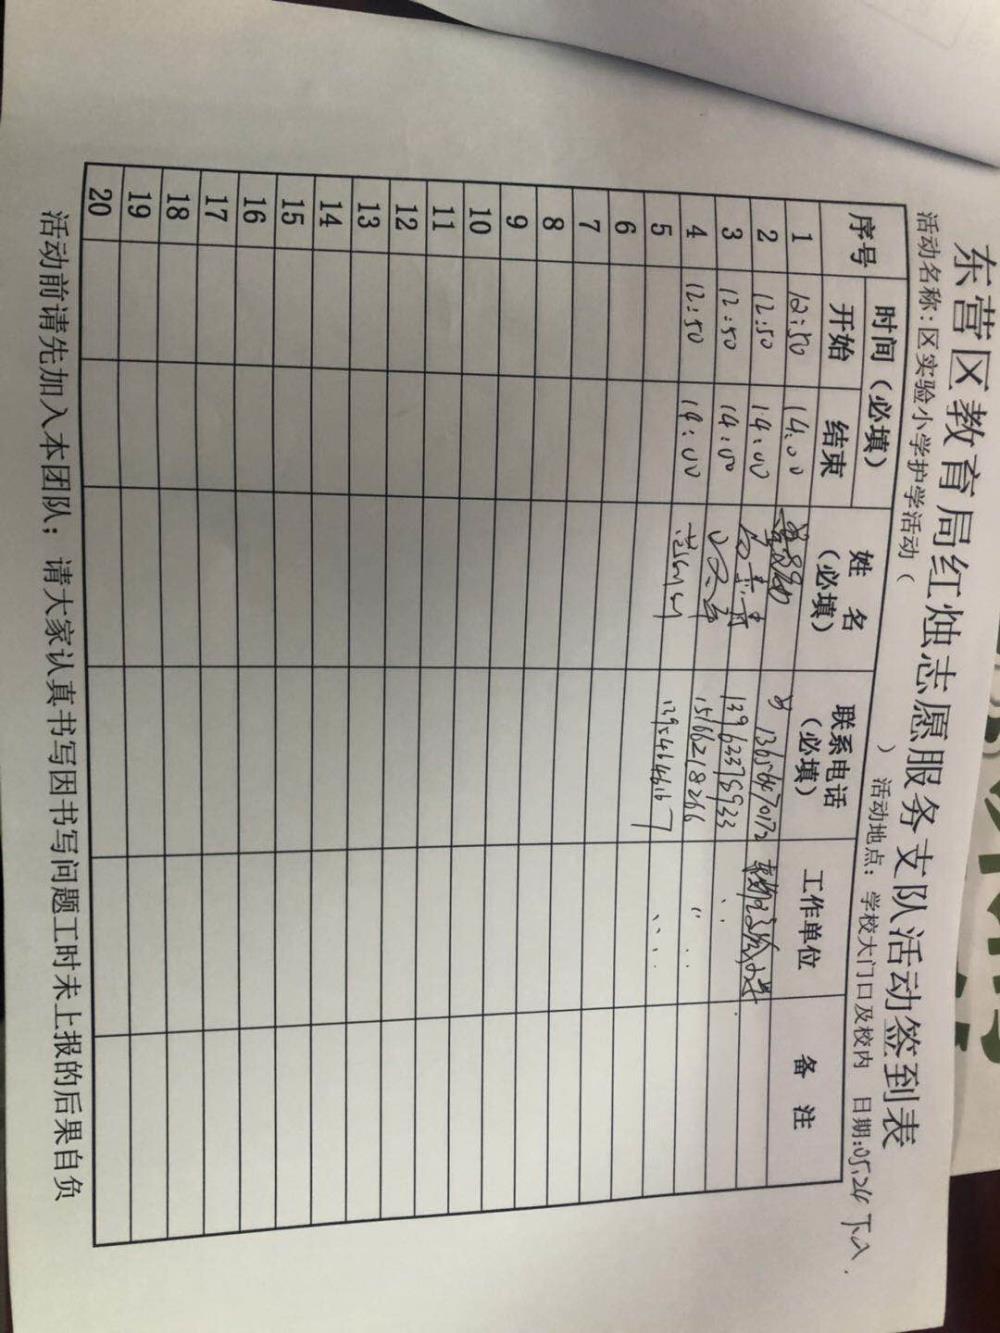 东营区教育局红烛志愿服务支队活动签到表
活动名称：区实验小学护学活动（ ） 活动地点：学校大门口及校内 日期：05.24 下入.
序号 时间（必填） 姓 名（必填） 联系电话（必填） 工作单位 备 注
开始 结束
1 12:50 14:00
2 12:50 14:00 13656470172
3 12:50 14:00 13963376933
4 12:50 14:00 15166218266 〃
5
6
7
8
9
10
11
12
13
14
15
16
17
18
19
20
活动前请先加入本团队；请大家认真书写因书写问题工时未上报的后果自负